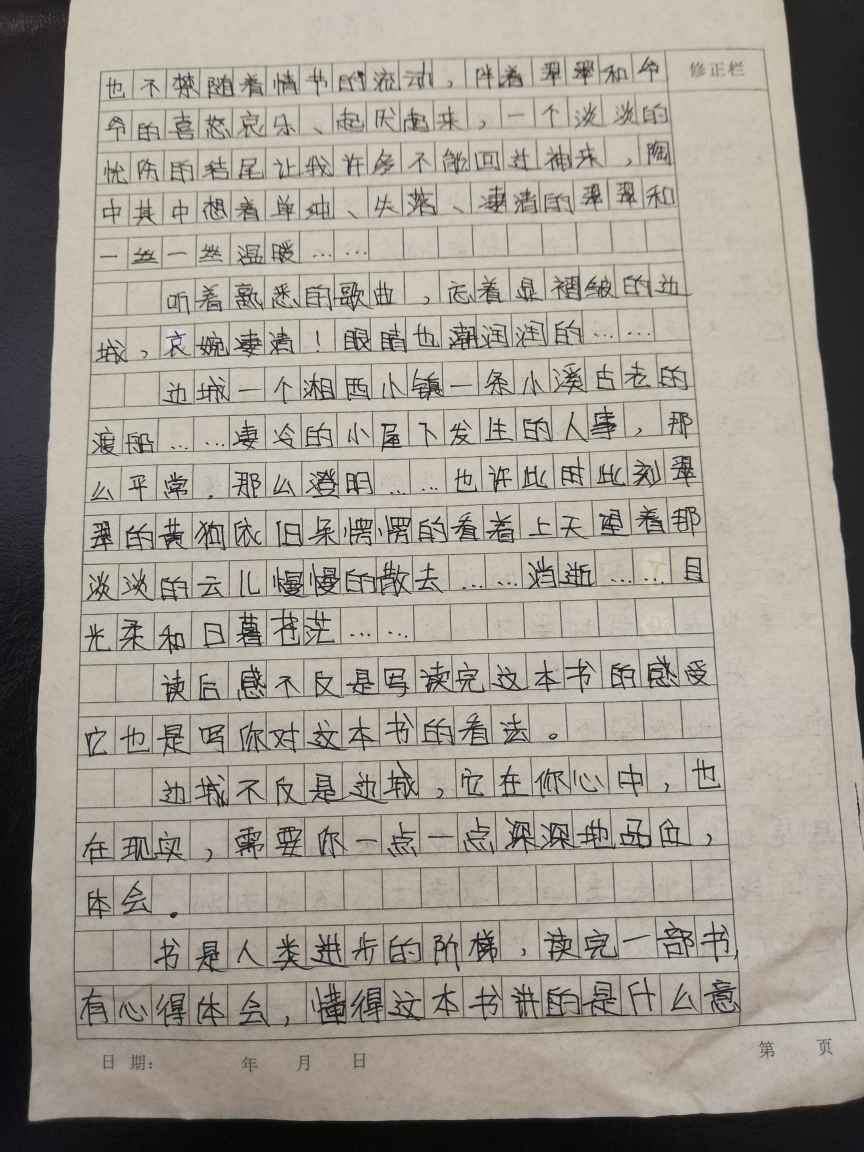 也不禁随着情书的流动，伴着翠翠和爷
修正栏
爷的喜怒哀乐、起伏起来，一个淡淡的
忧伤的结尾让我许多不能回过神来，陶
中其中想着单纯、失落、凄清的翠翠和
一丝一丝温暖……
听着熟悉的歌曲，忘着显褶皱的边
城，哀婉凄清！眼睛也潮润润的……
边城一个湘西小镇一条小溪古老的
渡船……凄冷的小屋下发生的人事，那
么平常．那么澄明……也许此时此刻翠
翠的黄狗依旧呆愣愣的看着上天望着那
淡淡的云儿慢慢的散去……消逝……目
光柔和日暮苍茫……
读后感不反是写读完这本书的感受
它也是写你对这本书的看法。
边城不反是边城，它在你心中，也
在现实，需要你一点一点深深地品位，
体会．
书是人类进步的阶梯，读完一部书，
有心得体会，懂得这本书讲的是什么意
日期： 年 月 日
第 页